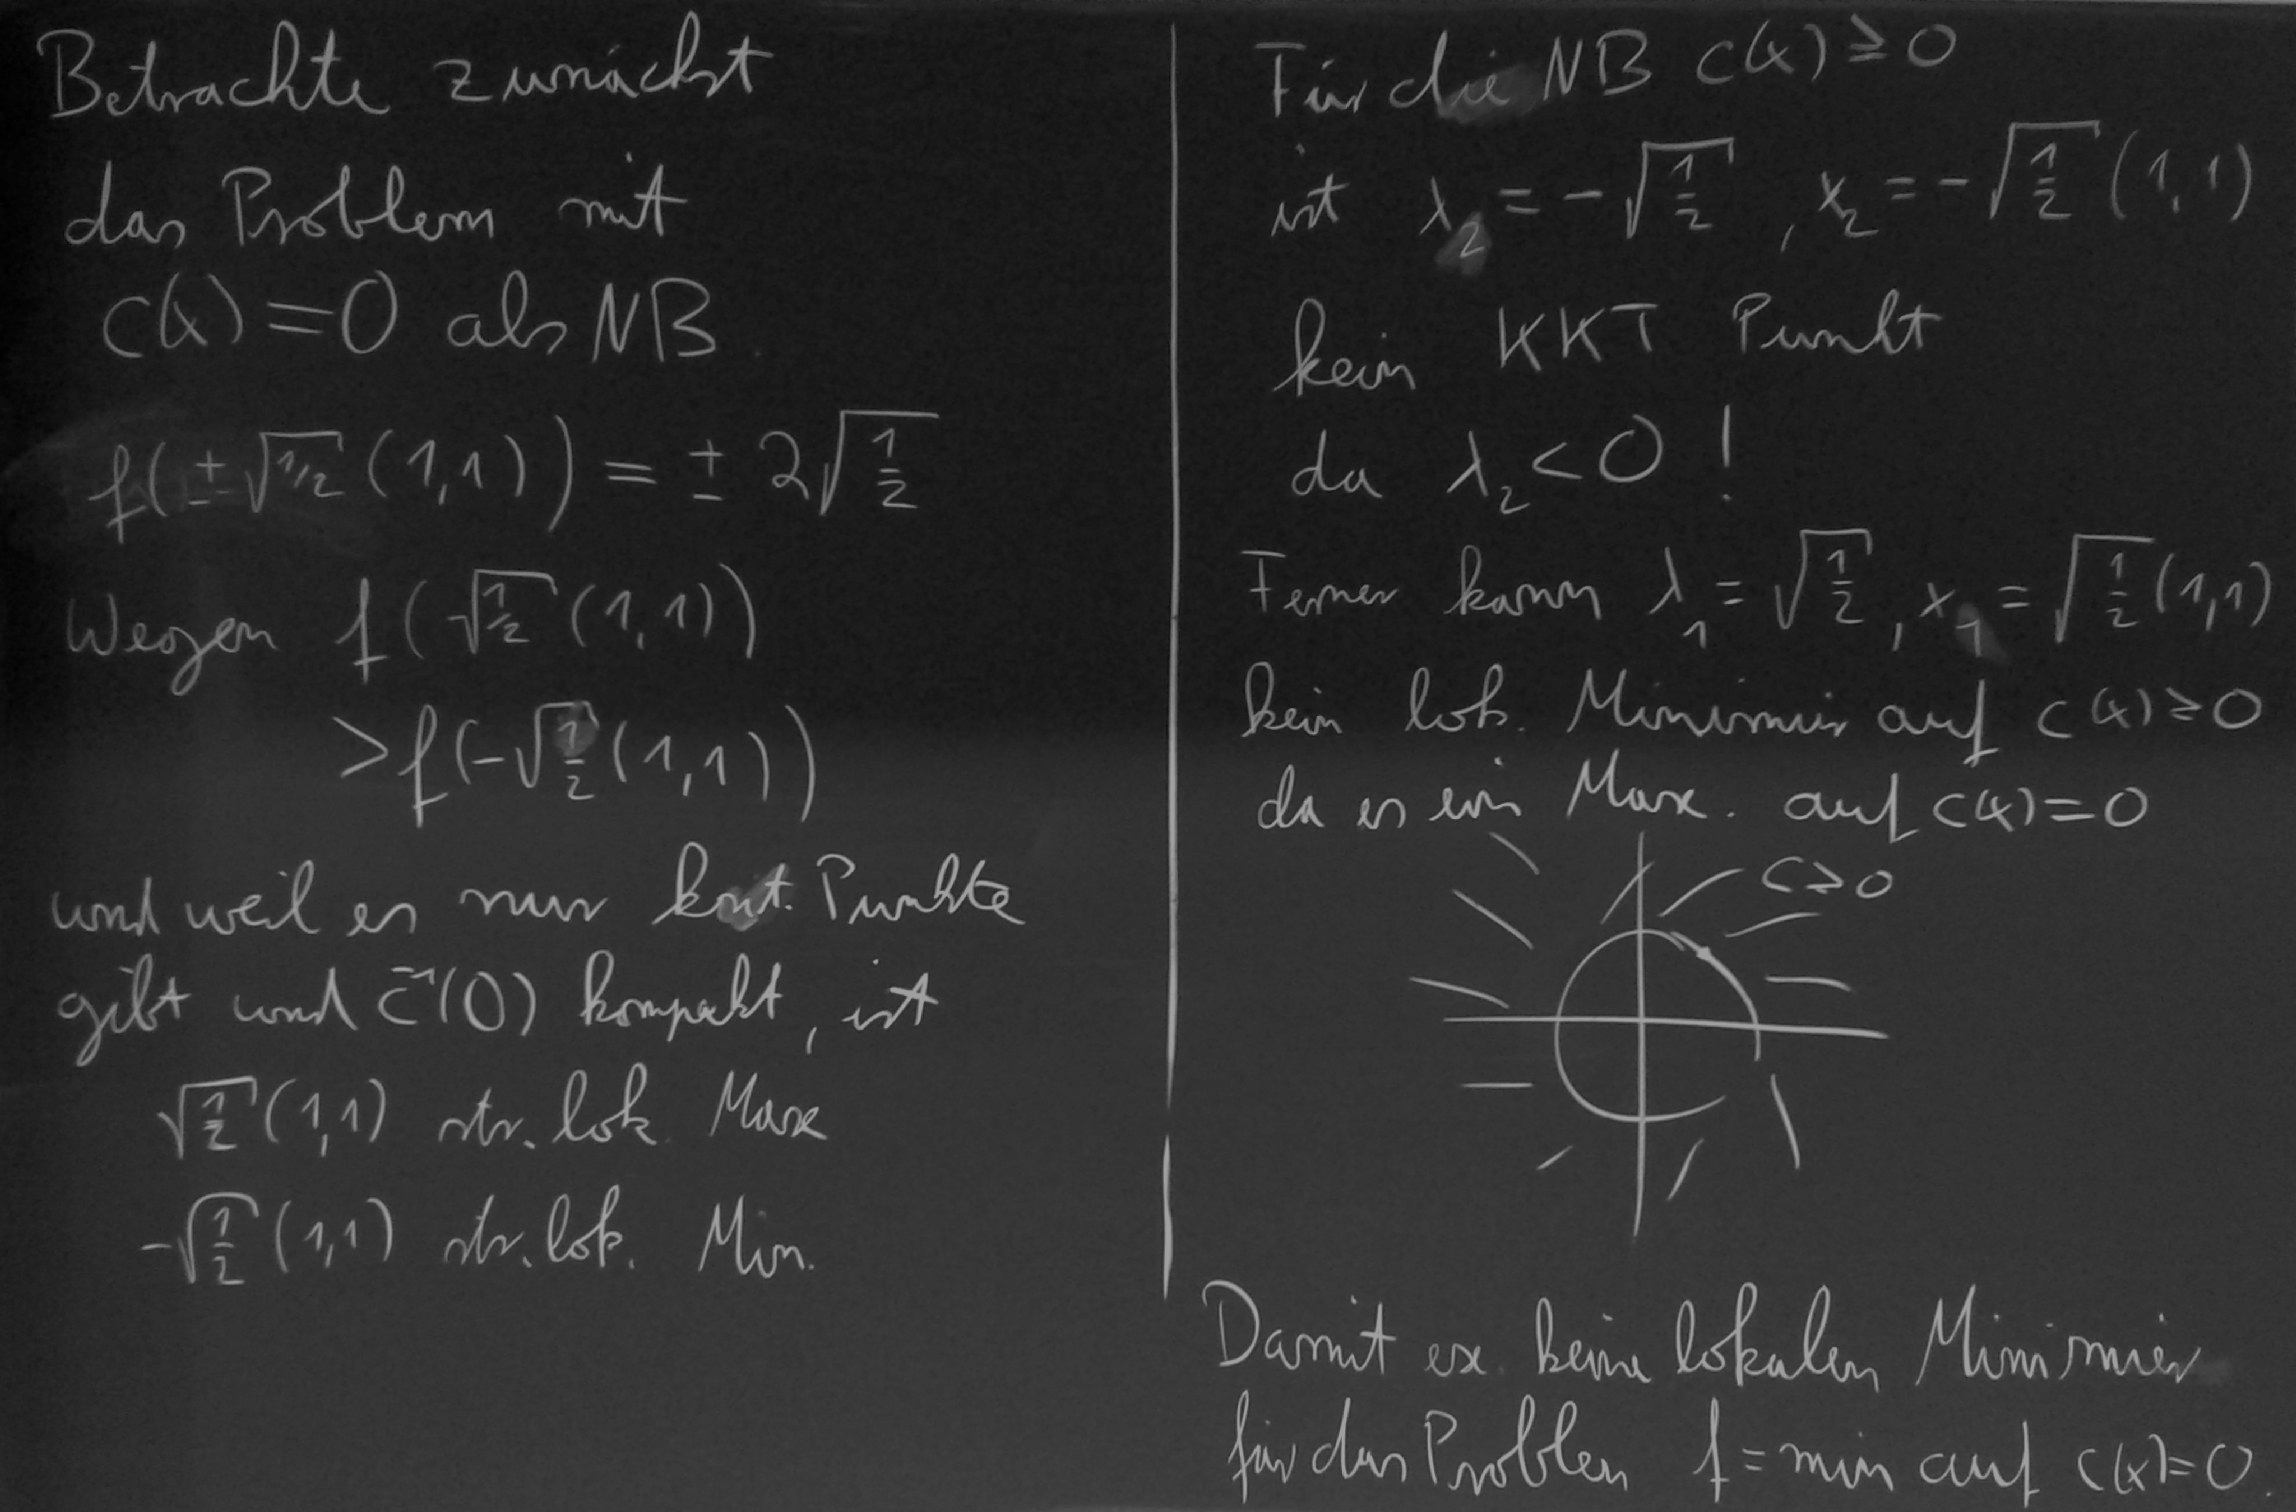 Betrachte zunächst
das Problem mit
c(x) = 0 als NB
f(±√1/2 (1,1)) = ± 2√1/2
Wegen f(√1/2 (1,1))
> f(-√1/2 (1,1))
und weil es nur krit. Punkte
gibt und c⁻¹(0) kompakt, ist
√1/2 (1,1) str. lok. Max
-√1/2 (1,1) str. lok. Min.
Für die NB c(x) ≥ 0
ist λ₂ = -√1/2, x₂ = -√1/2 (1,1)
kein KKT Punkt
da λ₂ < 0 !
Ferner kann λ₁ = √1/2, x₁ = √1/2 (1,1)
kein lok. Minimier auf c(x) ≥ 0
da es ein Max. auf c(x) = 0
c ≥ 0
Damit ex. keine lokalen Minimier
für das Problem f = min auf c(x) = 0.